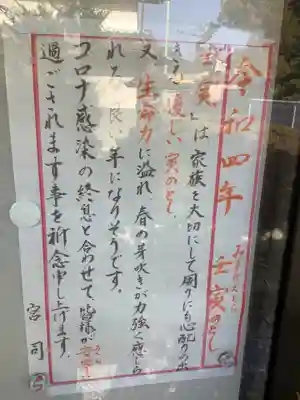 令和四年
みずのえとら
壬寅のとし
「壬寅」は家族を大切にして周りにも心配りの出
来る優しい寅のとし
又生命力に溢れ春の芽吹きが力強く感じら
れる良い年になりそうです。
コロナ感染の終息と合わせて、皆様が安心し
過ごされます事を祈念申し上げます。
宮司